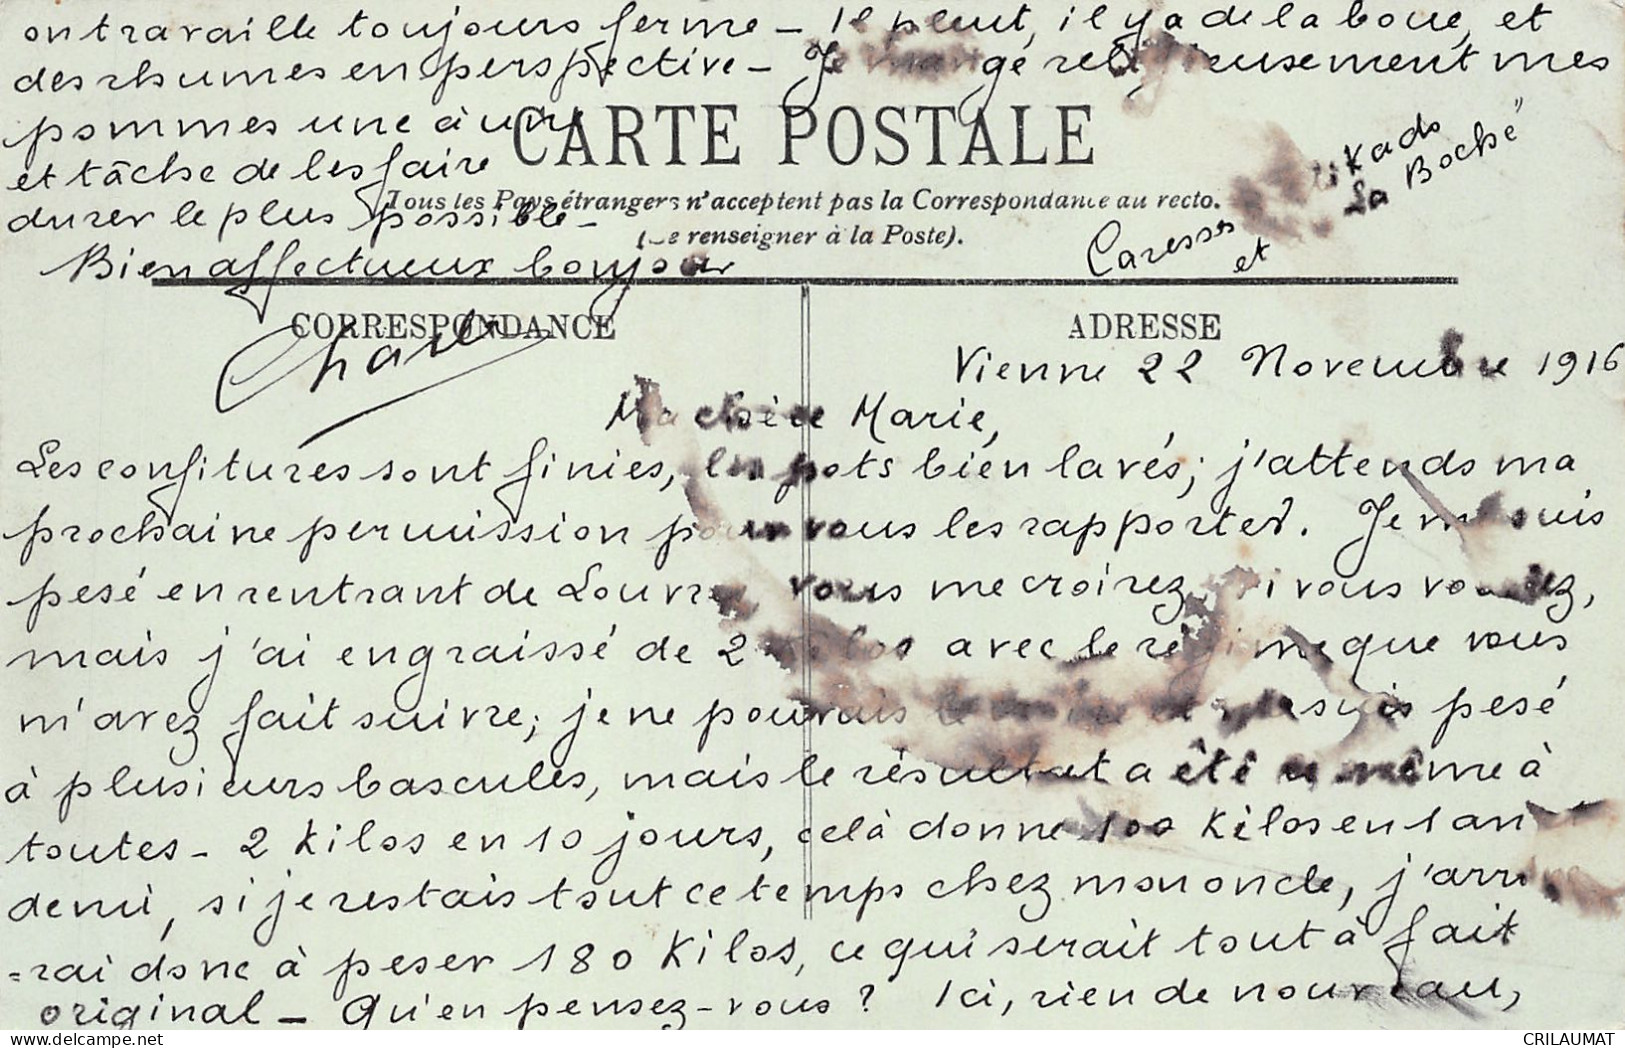 on travaille toujours ferme - Il pleut, il y a de la boue, et
des rhumes en perspective - Je mange religieusement mes
pommes une à une
et tâche de les faire
durer le plus possible -
Bien affectueux bonjour
Charles
CARTE POSTALE
Tous les Pays étrangers n'acceptent pas la Correspondance au recto.
(Se renseigner à la Poste).
Caresses
et
Kads
La Boche"
CORRESPONDANCE
ADRESSE
Vienne 22 Novembre 1916
Ma chère Marie,
Les confitures sont finies, les pots bien lavés; j'attends ma
prochaine permission pour vous les rapporter. Je me suis
pesé en rentrant de Louvres, vous me croirez si vous voulez,
mais j'ai engraissé de 2 kilos avec le régime que vous
m'avez fait suivre; je ne pouvais le croire et me suis pesé
à plusieurs bascules, mais le résultat a été le même à
toutes - 2 kilos en 10 jours, celà donne 100 kilos en 1 an
demi, si je restais tout ce temps chez mon oncle, j'arrive
=rai donc à peser 180 kilos, ce qui serait tout à fait
original - Qu'en pensez-vous ? Ici, rien de nouveau,
CRILAUMAT